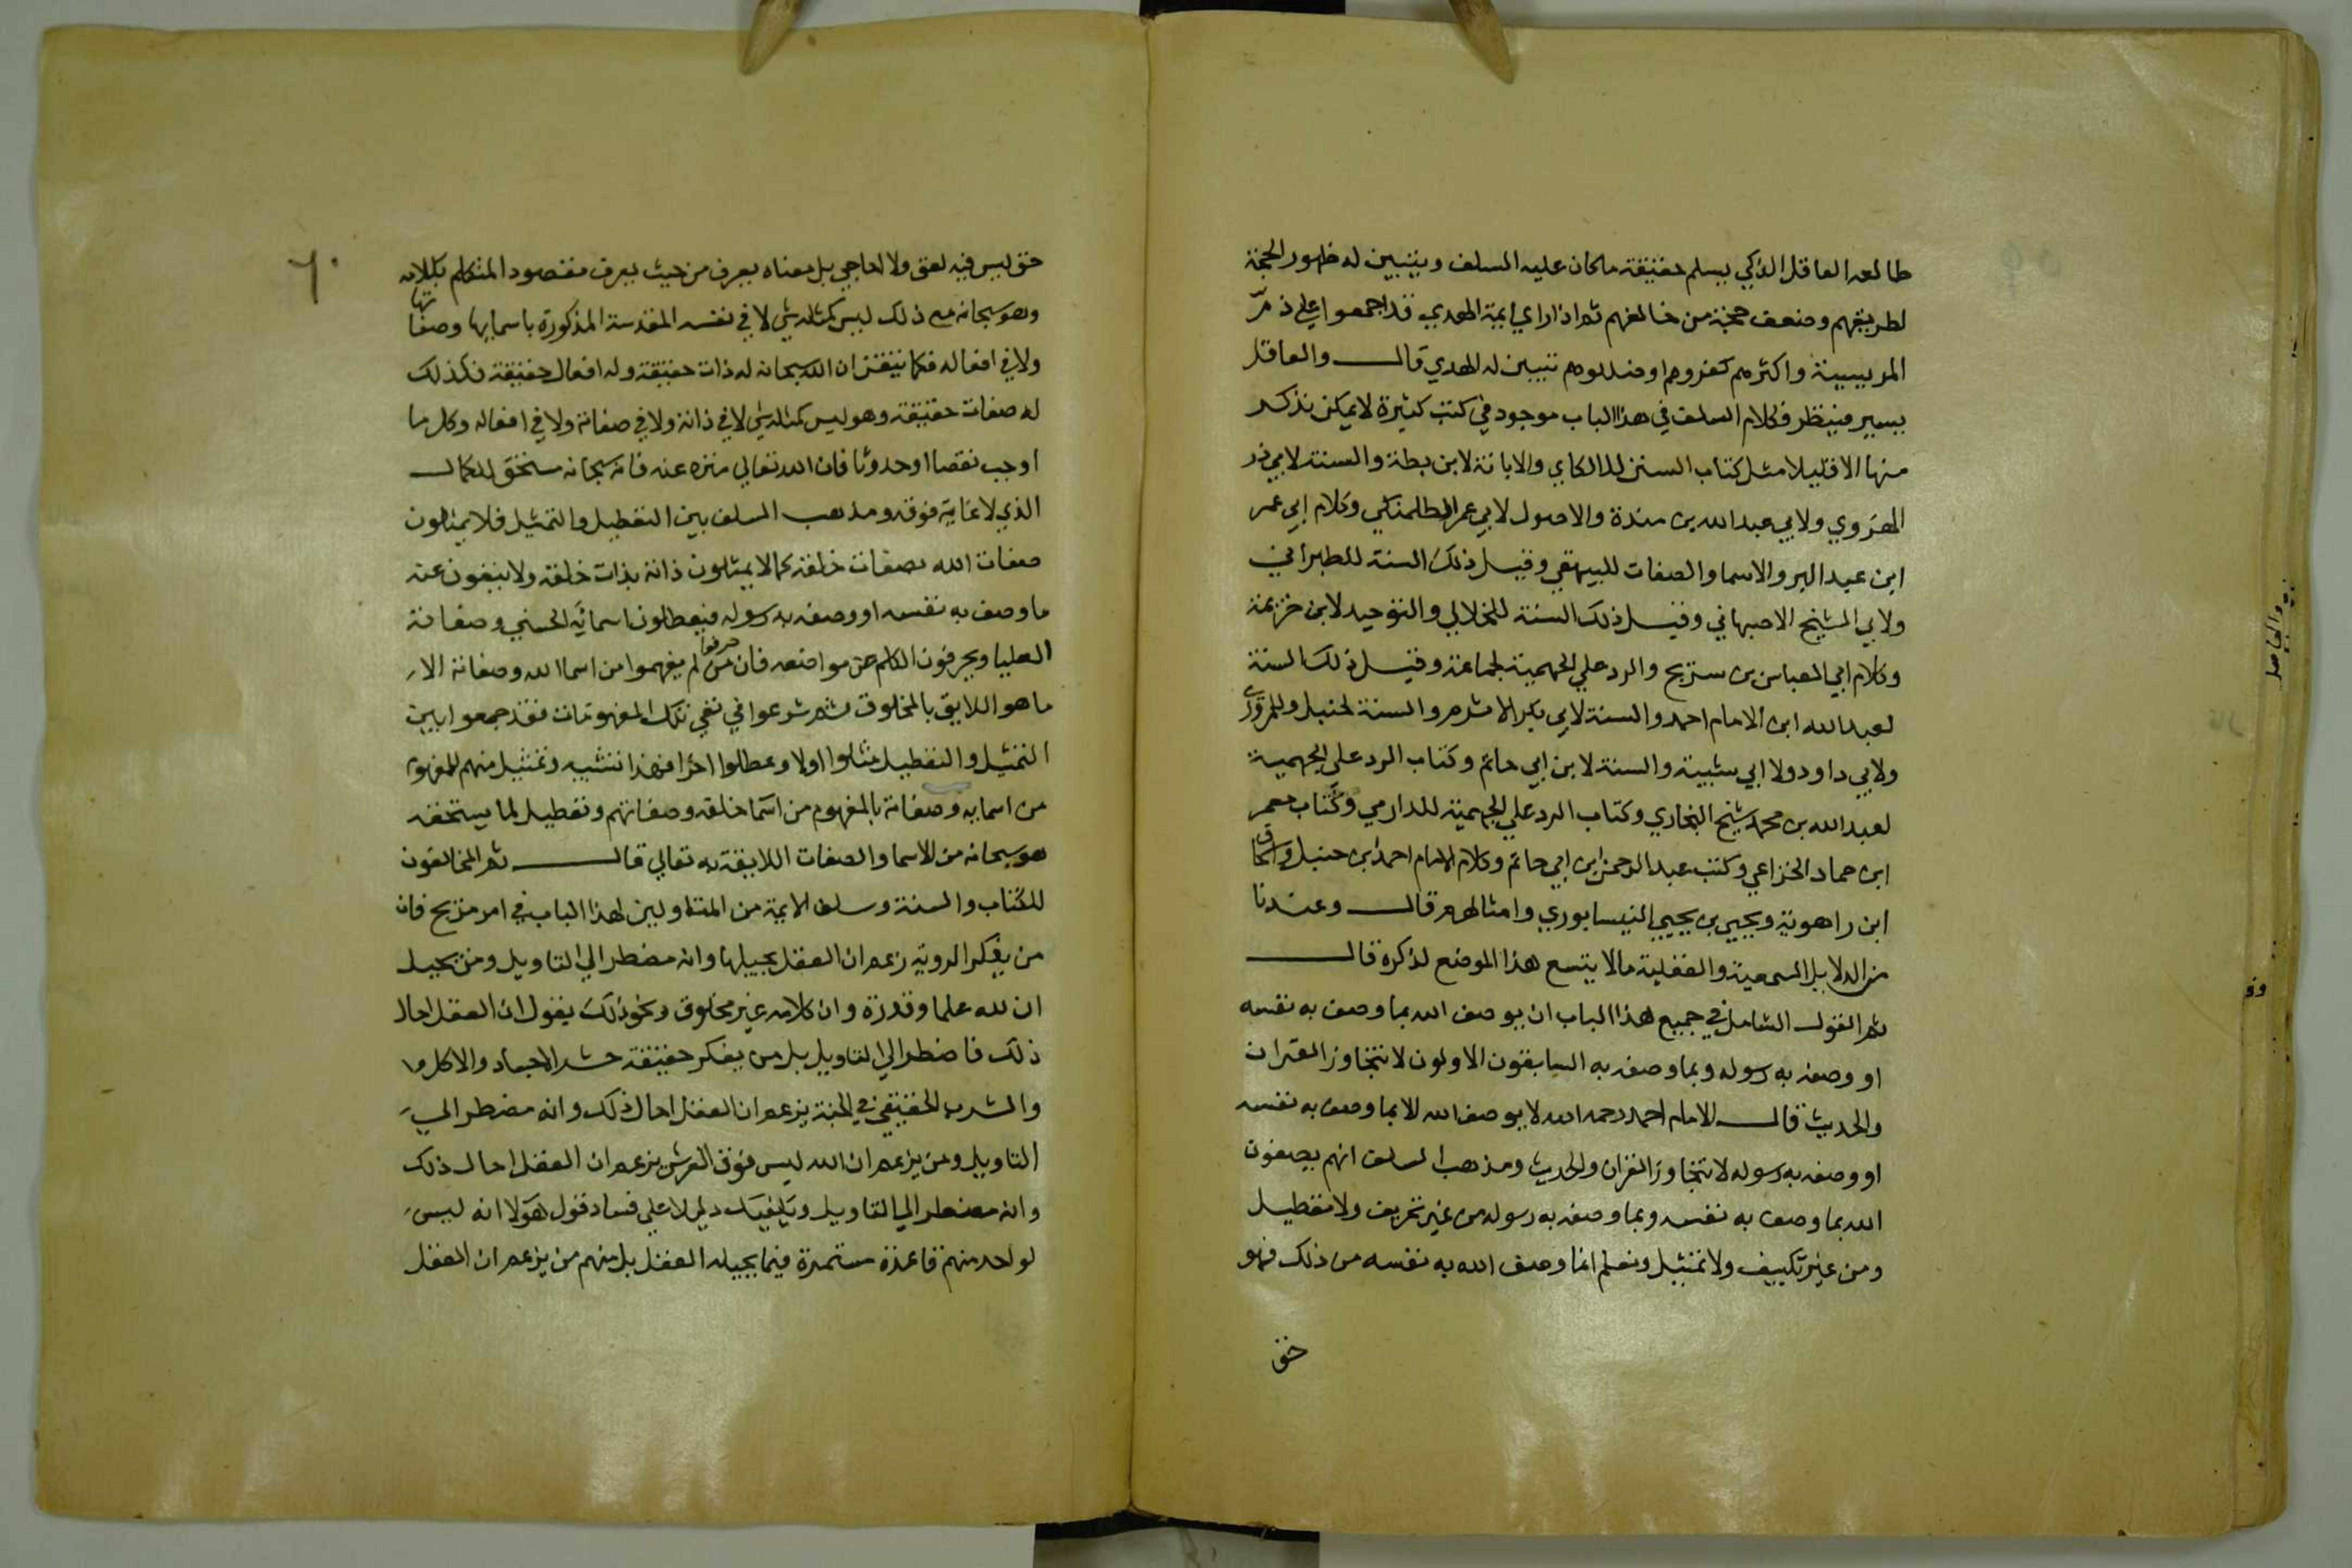 طالعه العاقل الذكي يسلم حقيقة ما كان عليه السلف ويتبين له ظهور الحجة
لطريقهم وضعف حجة من خالفهم ثم اذا راي ايمة الهدي قد اجمعوا علي ذم
المريسية واكثرهم كفروهم او ضللوهم تتبين له الهدي قال والعاقل
يسير فينظر فكلام السلف في هذا الباب موجود في كتب كثيرة لا يمكن نذكر
منها الا قليلا مثل كتاب السنن لللالكاي والابانة لابن بطة والسنة لابي ذر
الهروي ولابي عبد الله بن مندة والاصول لابي عمر الطلمنكي وكلام ابي عمر
ابن عبد البر والاسما والصفات للبيهقي وقبل ذلك السنة للطبراني
ولابي الشيخ الاصبهاني وقبل ذلك السنة للخلالي والتوحيد لابن خزيمة
وكلام ابي العباس بن سريج والرد علي الجهمية لجماعة وقبل ذلك السنة
لعبد الله ابن الامام احمد والسنة لابي بكر الاثرم والسنة لحنبل وللمروزي
ولابي داود ولا ابي شيبة والسنة لابن ابي حاتم وكتاب الرد على الجهمية
لعبد الله بن محمد شيخ البخاري وكتاب الرد علي الجهمية للدارمي وكتاب نعم
ابن حماد الخزاعي وكتب عبد الرحمن ابن ابي حاتم وكلام الامام احمد ابن حنبل واسحاق
ابن راهوية ويحيي بن يحيي النيسابوري وامثالهم قال وعندنا
من الدلايل السمعية والعقلية ما لا يتسع هذا الموضع لذكرة قال
ثم القول الشامل في جميع هذا الباب ان يوصف الله بما وصف به نفسه
او وصفه به رسوله وبما وصفه به السابقون الاولون لا نتجاوز القران
والحديث قال الامام احمد رحمه الله لا يوصف الله الا بما وصف به نفسه
او وصفه به رسوله لا نتجاوز القران والحديث ومذهب السلف انهم يصفون
الله بما وصف به نفسه وبما وصفه به رسوله من غير تحريف ولا تعطيل
ومن غير تكييف ولا تمثيل ونعلم انما وصف الله به نفسه من ذلك فهو
حق
٦٠
حق ليس فيه لغز ولا احاجي بل معناه يعرف من حيث يعرف مقصود المتكلم بكلامه
وهو سبحانه مع ذلك ليس كمثله شي لا في نفسه المقدسة المذكورة باسمايها وصفاتها
ولا في افعاله فكما نتيقن ان الله سبحانه له ذات حقيقة وله افعال حقيقة فكذلك
له صفات حقيقة وهو ليس كمثله شي لا في ذاتة ولا في صفاتة ولا في افعاله وكل ما
اوجب نقصا او حدوثا فان الله تعالي منزه عنه فانه سبحانه مستحق للكمال
الذي لا غاية فوقه ومذهب السلف بين التعطيل والتمثيل فلا يمثلون
صفات الله بصفات خلقة كما لا يمثلون ذاته بذات خلقه ولا ينفون عنه
ما وصف به نفسه او وصفه به رسوله فيعطلون اسمائه الحسني وصفاتة
العليا ويحرفون الكلم عن مواضعه فان من حرفوا لم يفهموا من اسما الله وصفاتة الا
ما هو اللايق بالمخلوق ثم شرعوا في نفي تلك المفهومات فقد جمعوا بين
التمثيل والتعطيل مثلوا اولا وعطلوا اخرا فهذا تشبيه وتمثيل منهم للمفهوم
من اسمايه وصفاتة بالمفهوم من اسما خلقه وصفاتهم وتعطيل لما يستحقه
هو سبحانه من الاسما والصفات اللايقة به تعالي قال ثم المخالفون
للكتاب والسنة وسلف الايمة من المتاولين لهذا الباب في امر مريج فان
من يفكر الروية زعم ان العقل يحيلها وانه مضطر الي التاويل ومن يحيل
ان لله علما وقدرة وان كلامه غير مخلوق ونحو ذلك يقول ان العقل احال
ذلك فاضطر الي التاويل بل من يفكر حقيقة حشر الاجساد والاكل وا
والشرب الحقيقي في الجنة يزعم ان العقل احال ذلك وانه مضطر الي
التاويل ومن يزعم ان الله ليس فوق العرش يزعم ان العقل احال ذلك
وانه مضطر الي التاويل ويكفيك دليلا علي فساد قول هولا انه ليس
لواحد منهم قاعدة مستمرة فيما يحيله العقل بل منهم من يزعم ان العقل